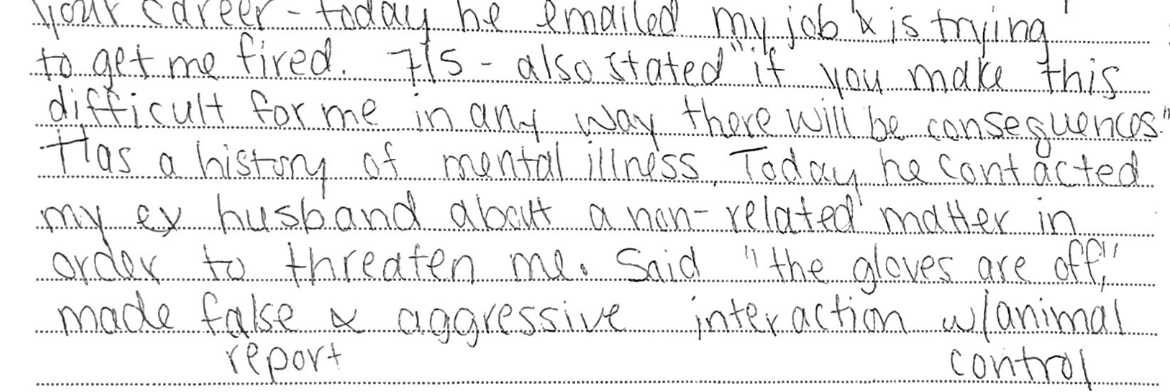 your career - today he emailed my job & is trying
to get me fired. 7/5 - also stated "if you make this
difficult for me in any way there will be consequences."
Has a history of mental illness. Today he contacted
my ex husband about a non-related matter in
order to threaten me. Said "the gloves are off,"
made false & aggressive interaction w/animal
report control